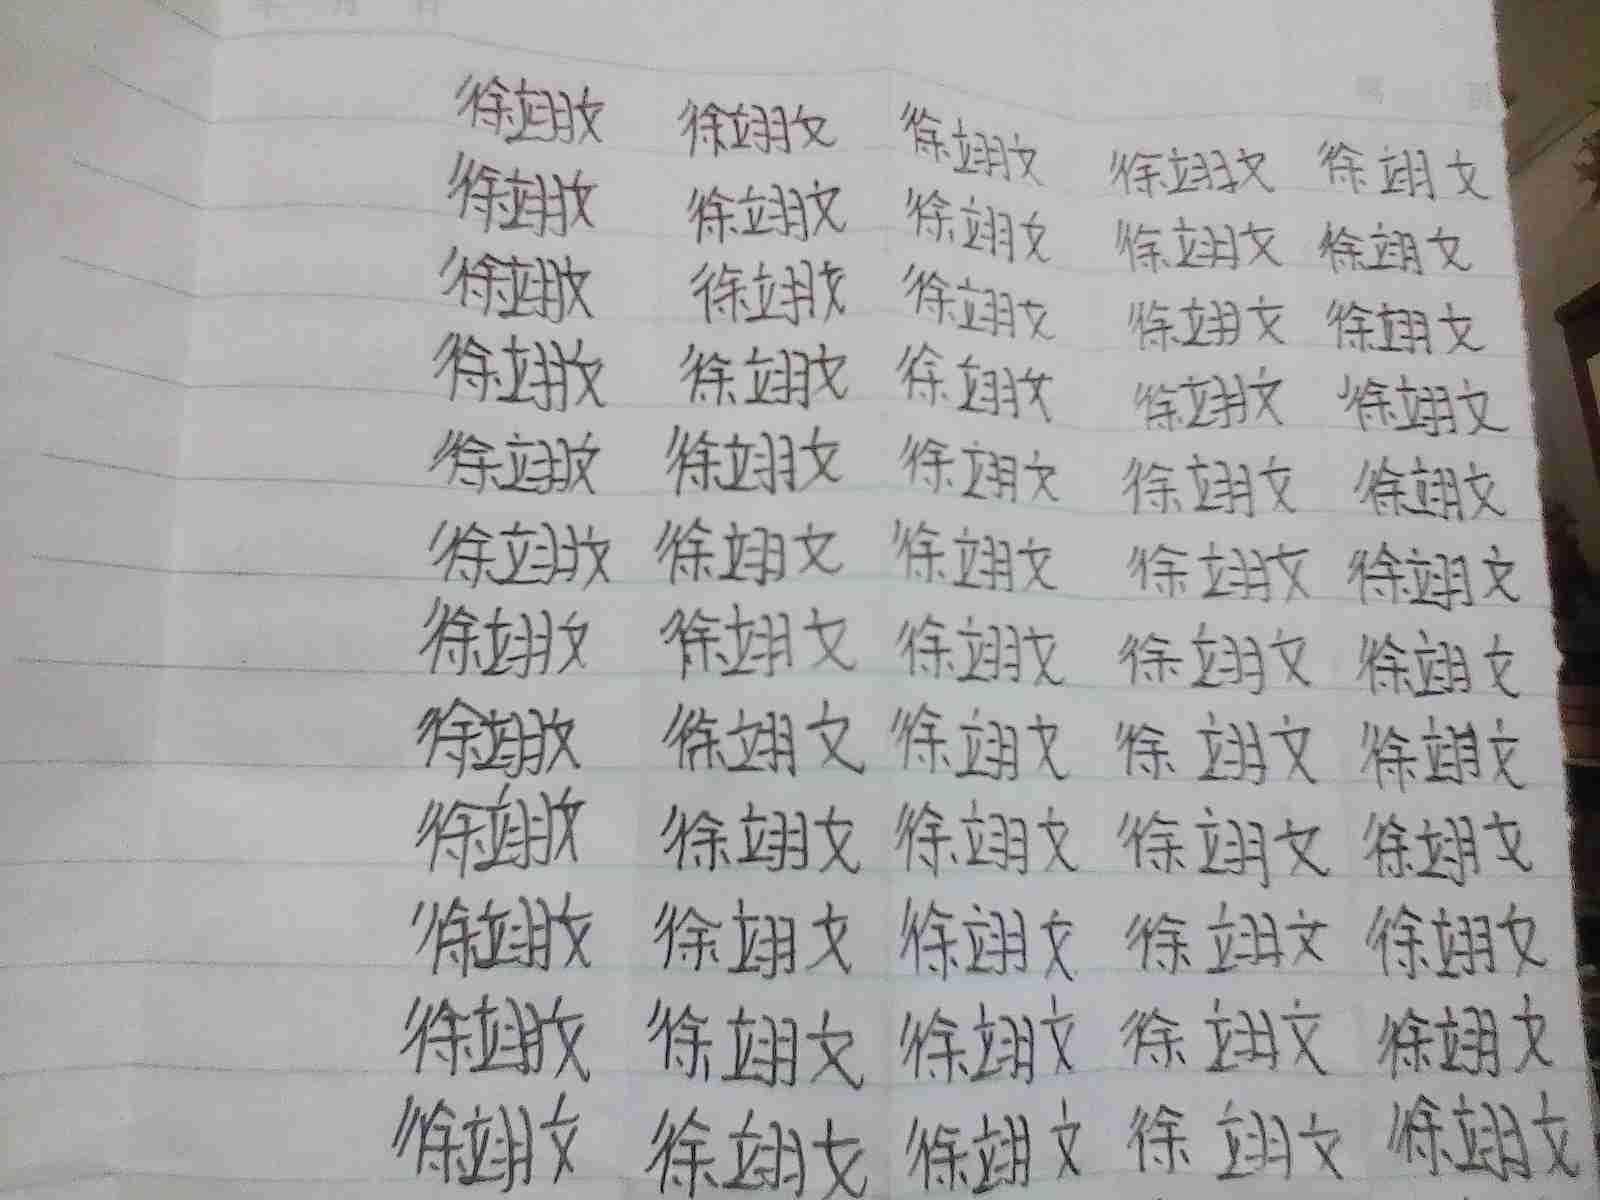 徐翊文 徐翊文 徐翊文 徐翊文 徐翊文
徐翊文 徐翊文 徐翊文 徐翊文 徐翊文
徐翊文 徐翊文 徐翊文 徐翊文 徐翊文
徐翊文 徐翊文 徐翊文 徐翊文 徐翊文
徐翊文 徐翊文 徐翊文 徐翊文 徐翊文
徐翊文 徐翊文 徐翊文 徐翊文 徐翊文
徐翊文 徐翊文 徐翊文 徐翊文 徐翊文
徐翊文 徐翊文 徐翊文 徐翊文 徐翊文
徐翊文 徐翊文 徐翊文 徐翊文 徐翊文
徐翊文 徐翊文 徐翊文 徐翊文 徐翊文
徐翊文 徐翊文 徐翊文 徐翊文 徐翊文
徐翊文 徐翊文 徐翊文 徐翊文 徐翊文